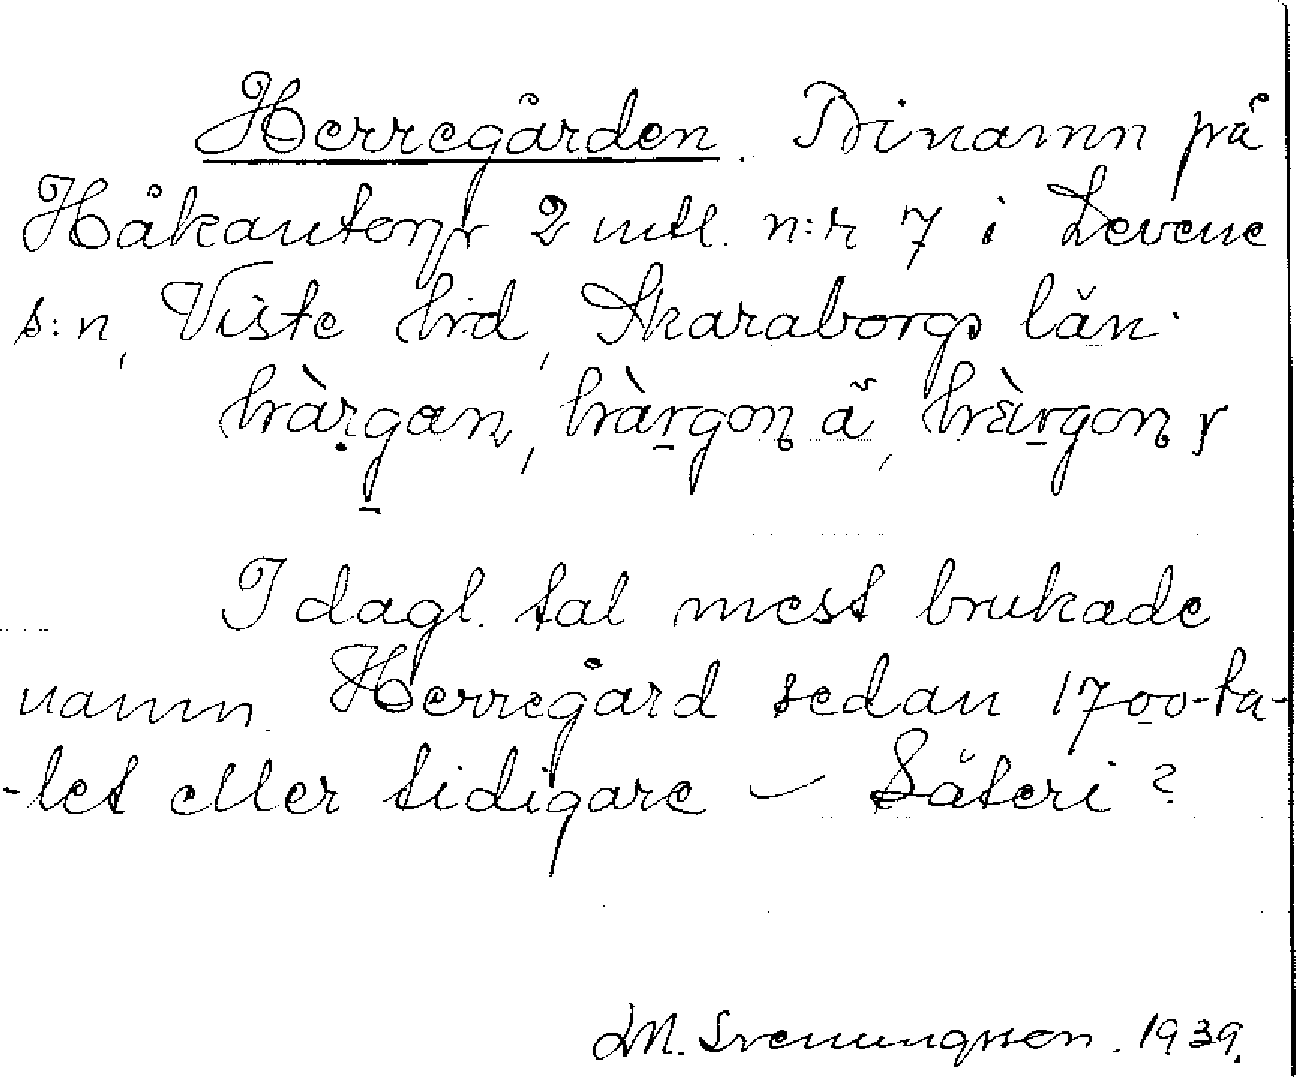 Herregården. Binamn på
Håkantorp 2 mtl. n:r 7 i Levene
s:n, Viste hrd, Skaraborgs län.
I dagl. tal mest brukade
namn. Herregård sedan 1700-ta-
-let eller tidigare – Säteri?
M. Svenungsson. 1939.